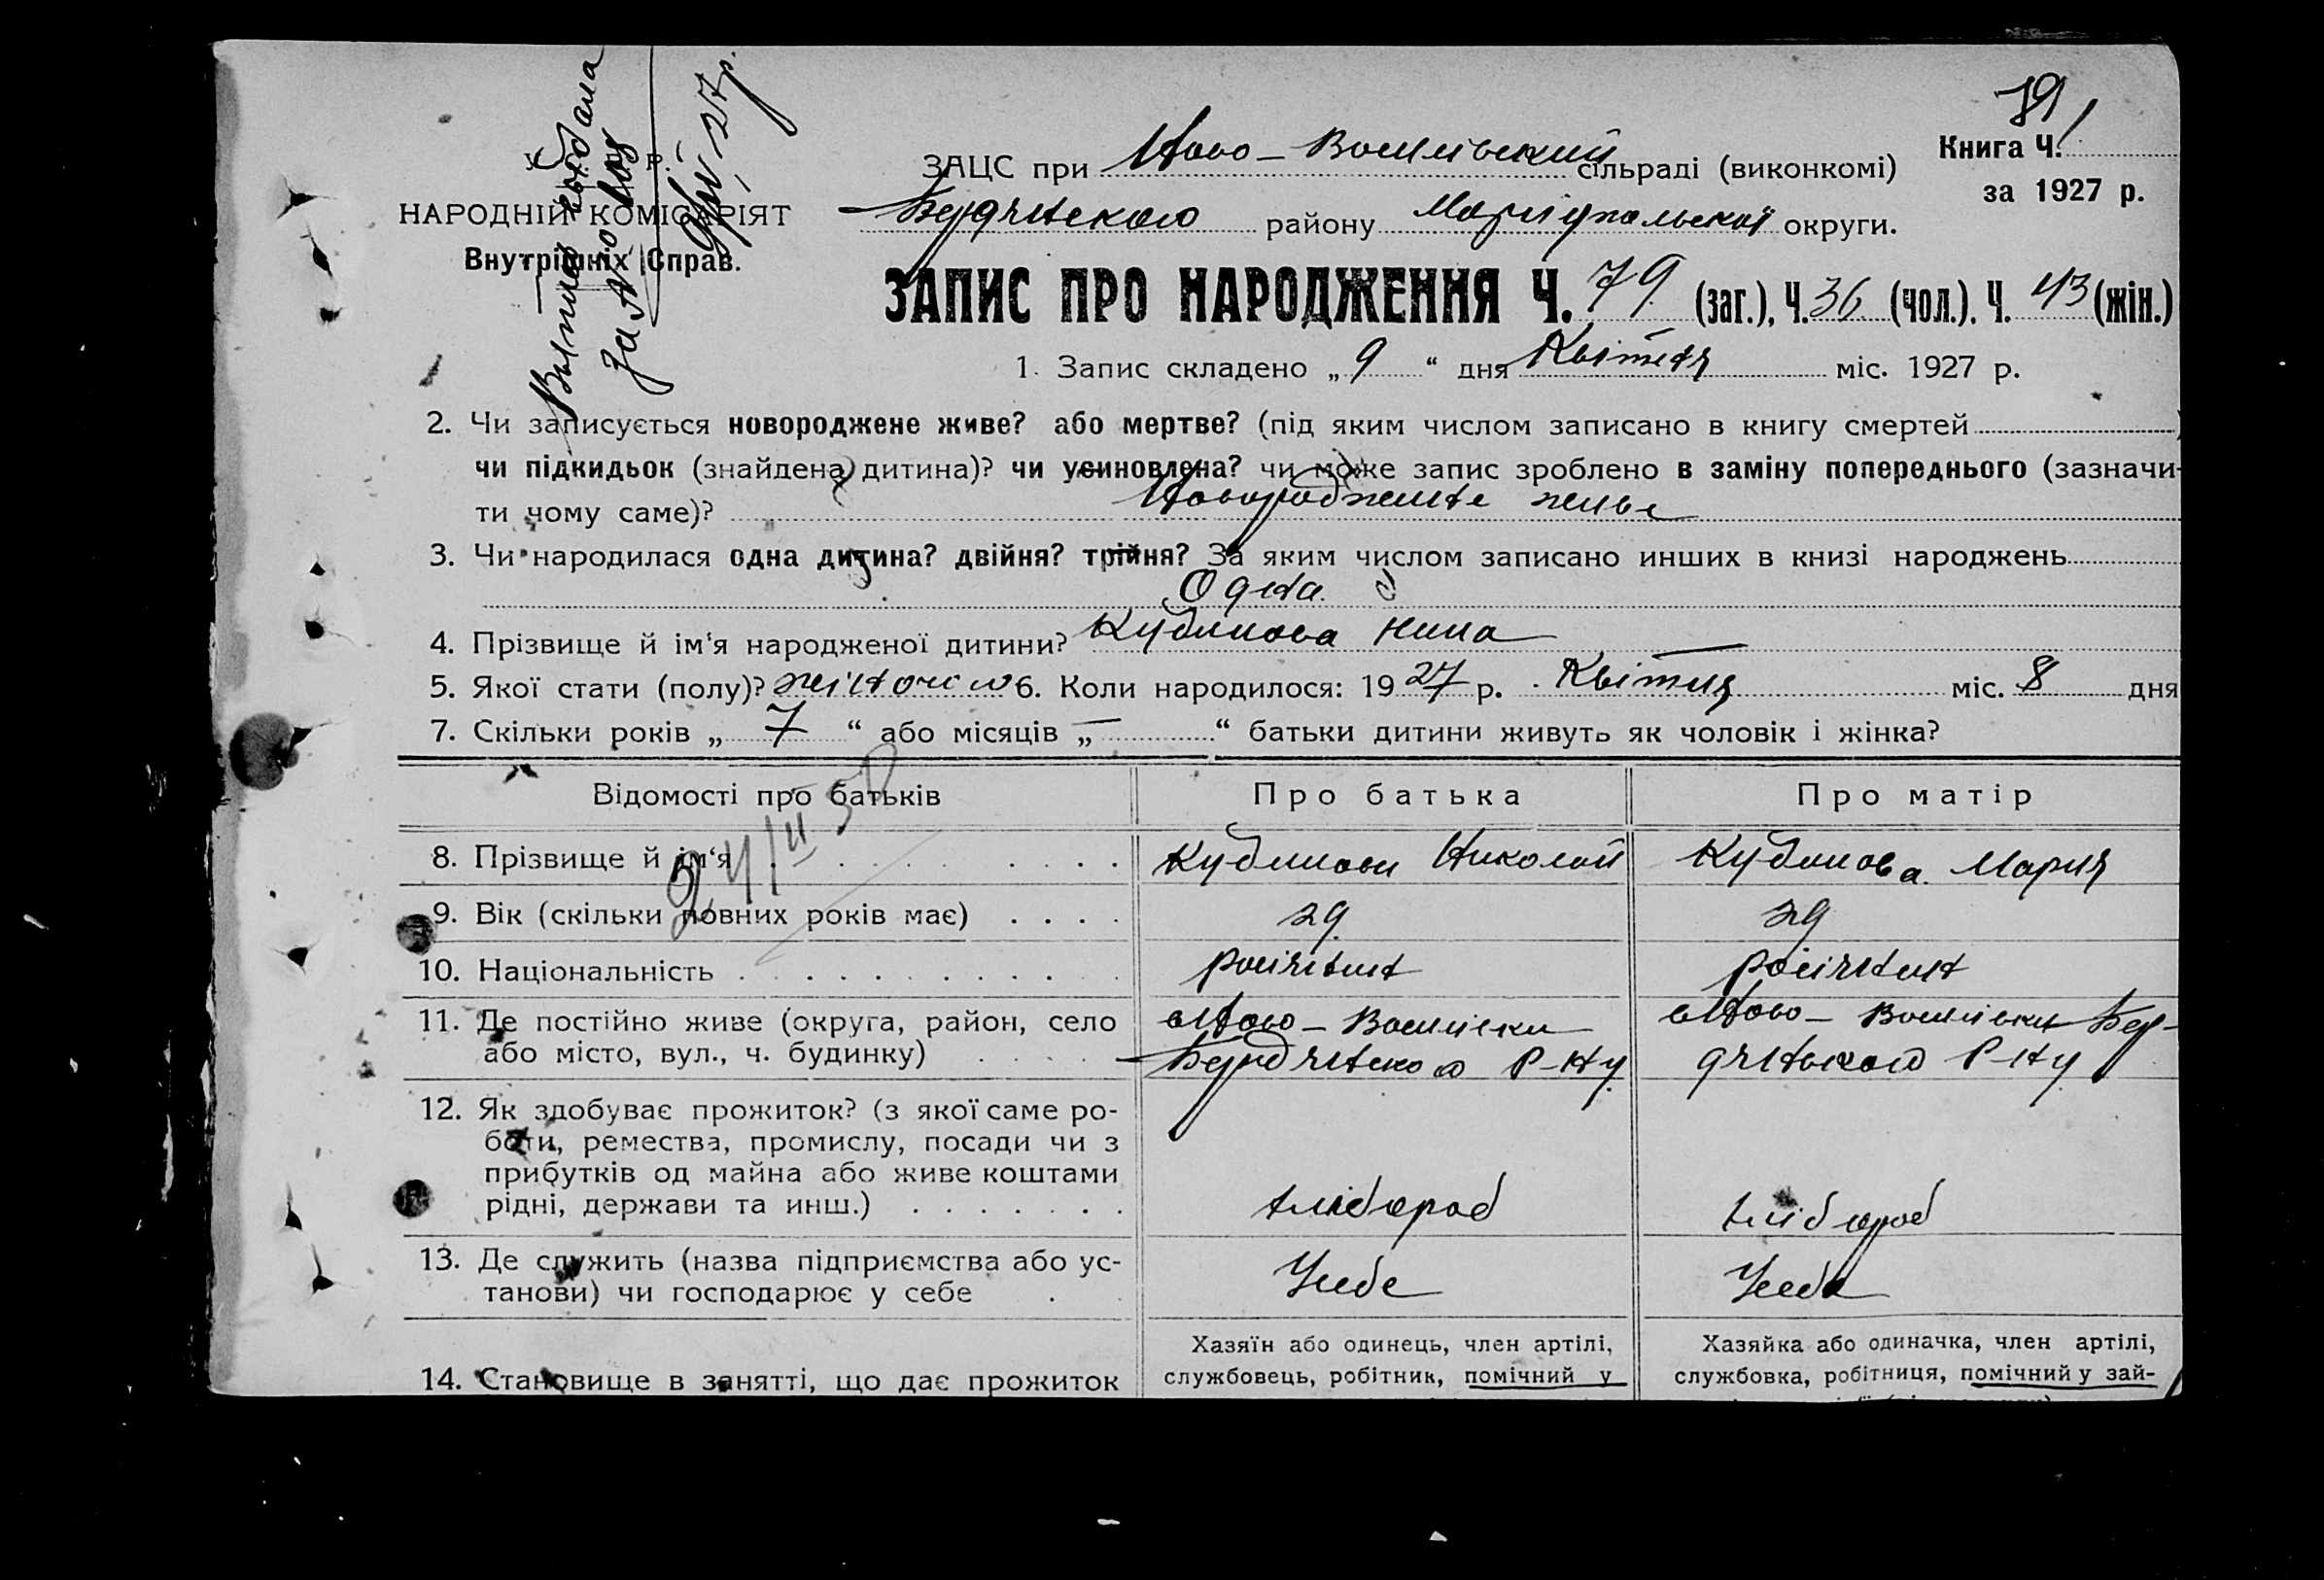 79
Книга Ч.
за 1927 р.
У. Р.
НАРОДНІЙ КОМІСАРІЯТ
Внутрішніх Справ.
27 р.
ЗАЦС при Ново-Василівський сільраді (виконкомі)
Бердянського району Маріупольської округи.
ЗАПИС ПРО НАРОДЖЕННЯ Ч. 79 (заг.), Ч. 36 (чол.). Ч. 43 (жін.)
1. Запис складено „ 9 “ дня Квітня міс. 1927 р.
2. Чи записується новороджене живе? або мертве? (під яким числом записано в книгу смертей )
чи підкидьок (знайдена дитина)? чи усиновлена? чи може запис зроблено в заміну попереднього (зазначи-
ти чому саме)? Новороджене живе
3. Чи народилася одна дитина? двійня? трійня? За яким числом записано инших в книзі народжень
Одна
4. Прізвище й ім‘я народженої дитини? Нина
5. Якої стати (полу)? жіночою 6. Коли народилося: 1927 р. Квітня міс. 8 дня
7. Скільки років „ 7 “ або місяців „ — “ батьки дитини живуть як чоловік і жінка?
Відомості про батьків Про батька Про матір
8. Прізвище й ім‘я Николай Мария
9. Вік (скільки повних років має) 29 29
10. Національність росіянин росіянин
11. Де постійно живе (округа, район, село Ново-Василівки Ново-Василівки Бер-
або місто, вул., ч. будинку) Бердянского Р-ну дянського Р-ну
12. Як здобуває прожиток? (з якої саме ро-
боти, ремества, промислу, посади чи з
прибутків од майна або живе коштами
рідні, держави та инш.) хлібороб хлібороб
13. Де служить (назва підприємства або ус-
танови) чи господарює у себе Усебе Усебе
Хазяїн або одинець, член артілі, Хазяйка або одиначка, член артілі,
14. Становище в занятті, що дає прожиток службовець, робітник, помічний у службовка, робітниця, помічний у зай-